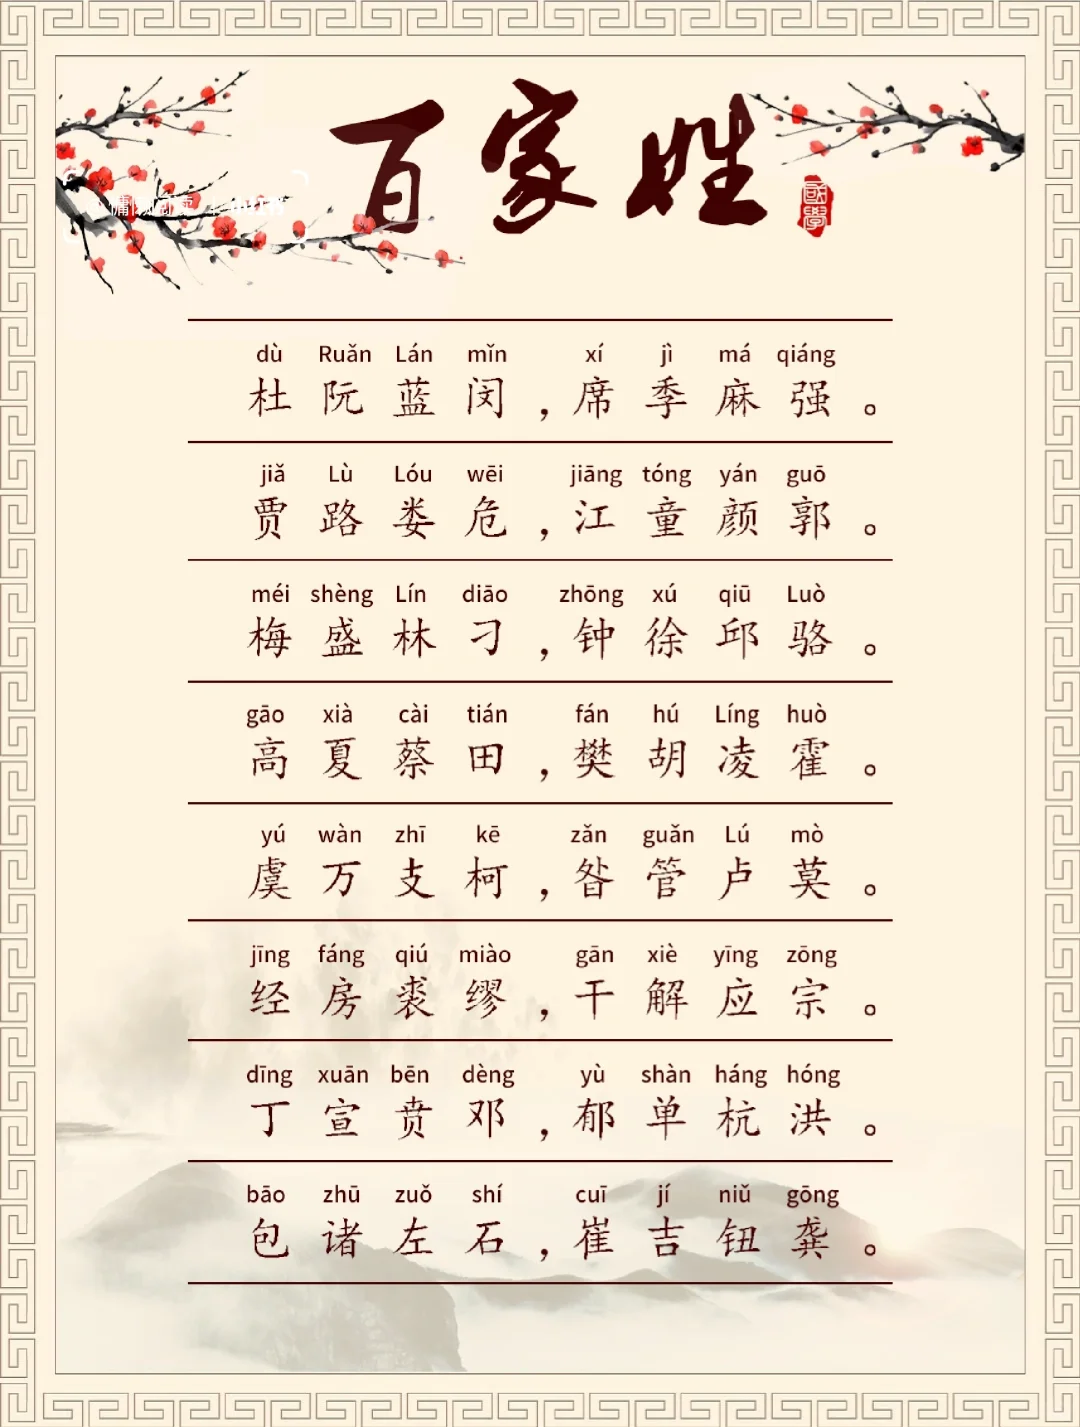 百家姓
國學
dù Ruǎn Lán mǐn xí jì má qiáng
杜 阮 蓝 闵 ，席 季 麻 强 。
jiǎ Lù Lóu wēi jiāng tóng yán guō
贾 路 娄 危 ，江 童 颜 郭 。
méi shèng Lín diāo zhōng xú qiū Luò
梅 盛 林 刁 ，钟 徐 邱 骆 。
gāo xià cài tián fán hú Líng huò
高 夏 蔡 田 ，樊 胡 凌 霍 。
yú wàn zhī kē zǎn guǎn Lú mò
虞 万 支 柯 ，昝 管 卢 莫 。
jīng fáng qiú miào gān xiè yīng zōng
经 房 裘 缪 ，干 解 应 宗 。
dīng xuān bēn dèng yù shàn háng hóng
丁 宣 贲 邓 ，郁 单 杭 洪 。
bāo zhū zuǒ shí cuī jí niǔ gōng
包 诸 左 石 ，崔 吉 钮 龚 。